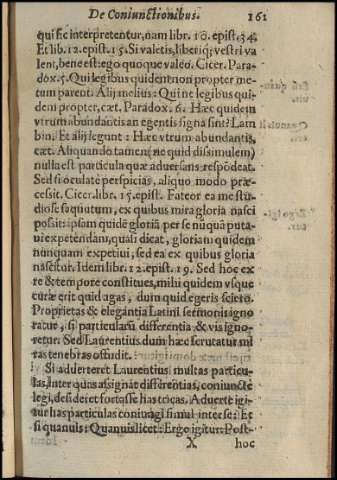 De Coniunctionibus. 161
qui sic interpretentur, nam libr. 10. epist. 34.
Et lib. 12. epist. 15. Si valetis, liberiq; vestri va
lent, bene est: ego quoque valeo. Cicer. Para-
dox. 5. Qui legibus quidem non propter me-
tum parent. Alij melius: Qui ne legibus qui-
dem propter, cæt. Paradox. 6. Hæc quidem
vtrum abundantis an egentis signa sint? Lam
bin. Et alij legunt: Hæc vtrum abundantis,
cæt. Aliquando tamen (ne quid dissimulem)
nulla est particula quæ aduersans respōdeat.
Sed si oculatè perspicias, aliquo modo præ-
cessit. Cicer. libr. 15. epist. Fateor ea me stu-
diose sequutum, ex quibus mira gloria nasci
posset: ipsam quidē gloriā per se nūquā puta-
ui expetendam, quasi dicat, gloriam quidem
nunquam expetiui, sed ea ex quibus gloria
nascitur. Idem libr. 12. epist. 19. Sed hoc ex
re & tempore constitues, mihi quidem vsque
curæ erit quid agas, dum quid egeris sciero.
Proprietas & elegātia Latini sermonis igno
ratur, si particularū differentia & vis igno-
retur. Sed Laurentius dum hæc scrutatur mi
ras tenebras offudit.
Si aduerteret Laurentius multas particu-
las, inter quas assignat differentias, coniunctè
legi, desideret fortasse has tricas. Aduerte igi
tur has particulas coniungi simul inter se: Et
si quanuis: Quanuis licet: Ergo igitur: Post-
X hoc